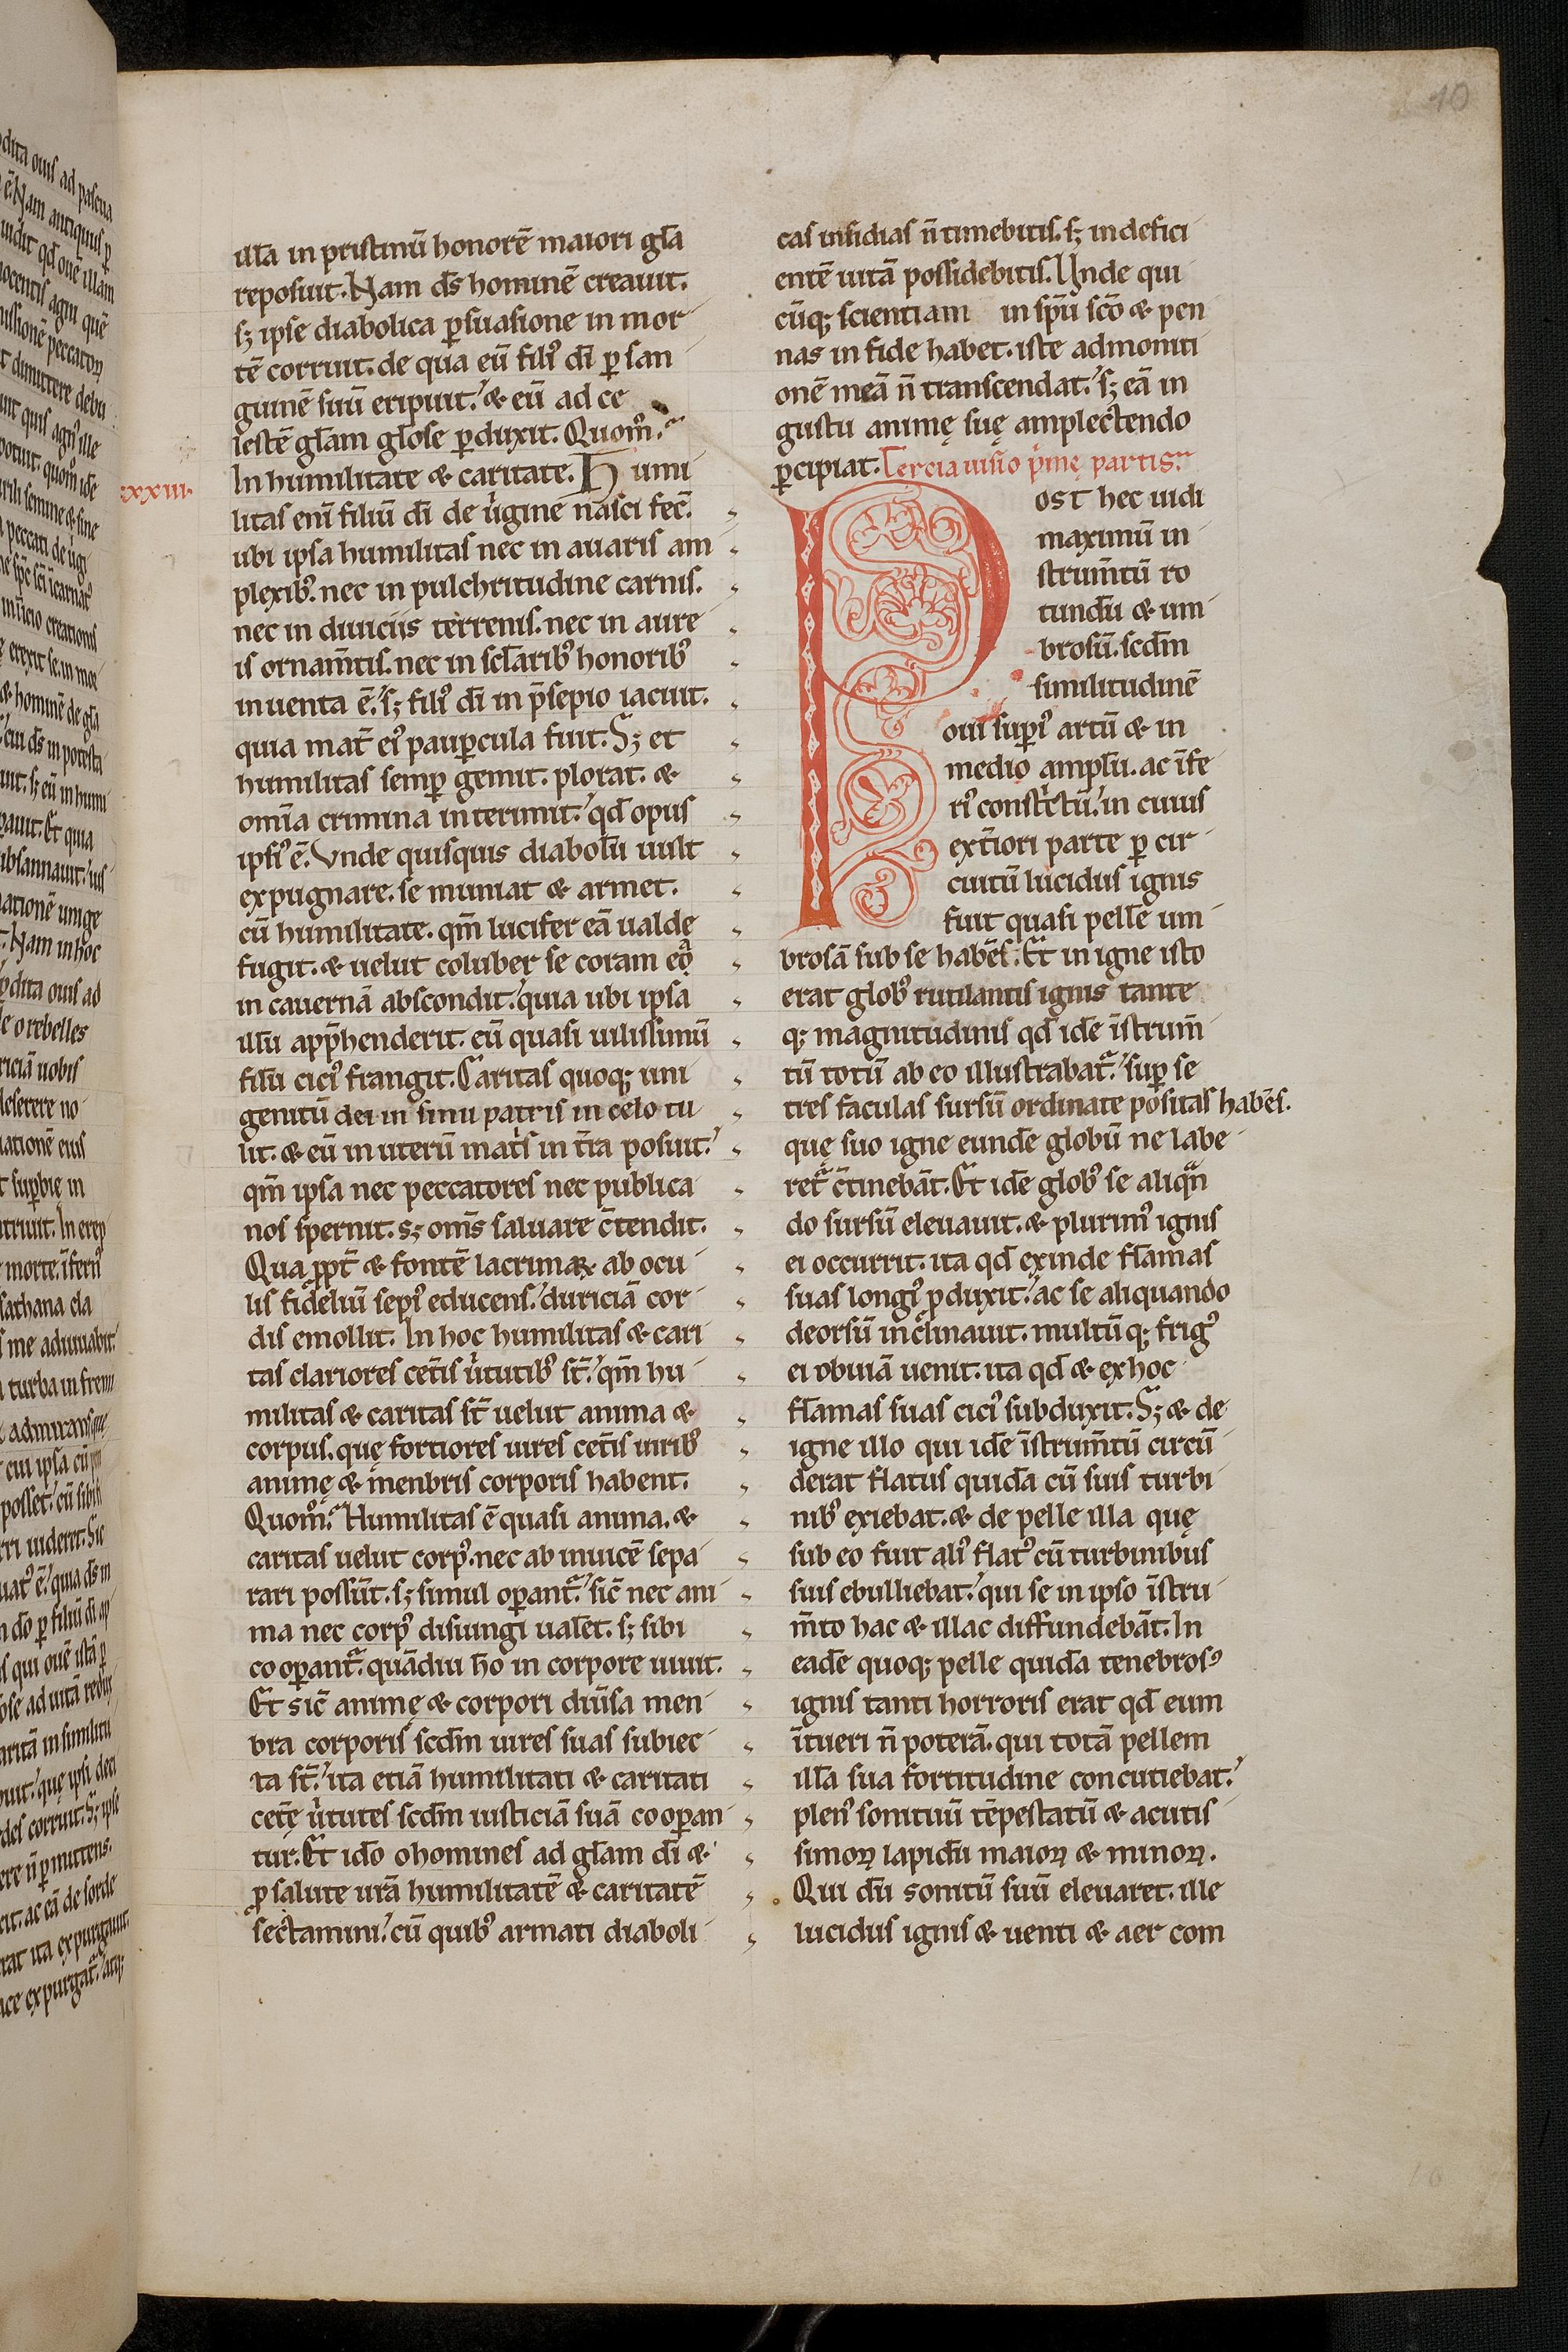 10
illā in pristinū honorē maiori gła
reposuit. Nam ds̄ hominē creauit.
sꝫ ipse diabolica ꝑsuasione in mor
tē corruit. de qua eū filiꝰ dī ꝑ san
guinē suū eripuit. & eū ad ce
lestē głam głose ꝑduxit. Quom̊.
In humilitate & caritate. Humi
xxxiii.
litas eni filiū dī de uͥgine nasci fec̄.
ubi ipsa humilitas nec in auaris am
plexibꝰ. nec in pulchritudine carnis.
nec in diuiciis terrenis. nec in aure
is ornam̄tis. nec in scłaribꝰ honoribꝰ
inuenta ē. sꝫ filiꝰ dī in p̄sepio iacuit.
quia mat̄ eiꝰ pauꝑcula fuit. Sꝫ et
humilitas semꝑ gemit. plorat. &
omīa crimina interimit. qd̄ opus
ipsiꝰ ē. Vnde quisquis diabolū uult
expugnare. se muniat & armet.
cū humilitate. qm̄ lucifer eā ualde
fugit. & uelut coluber se coram eo
in cauernā abscondit. quia ubi ipsa
illū app̄henderit. eū quasi uilissimū
filū ciciꝰ frangit. Caritas quoqꝫ uni
genitū dei in sinu patris in celo tu
lit. & eū in uterū matͥs in t̄ra posuit.
qm̄ ipsa nec peccatores nec publica
nos spernit. sꝫ om̄s saluare c̄tendit.
Qua ꝓpt̄ & fontē lacrimaꝝ ab ocu
lis fideliū sepiꝰ educens. duriciā cor
dis emollit. In hoc humilitas & cari
tas clariores cet̄is uͥtutibꝰ st̄. qm̄ hu
militas & caritas st̄ uelut anima &
corpus. quę fortiores uires cet̄is uiribꝰ
animę & menbris corporis habent.
Quom̊. Humilitas ē quasi anima. &
caritas uelut corpꝰ. nec ab inuicē sepa
rari possūt. sꝫ simul oꝑant᷑. sic̄ nec ani
ma nec corpꝰ disiungi ualet. sꝫ sibi
cooꝑant᷑. quādiu ho̅ in corpore uiuit.
Et sic̄ animę & corpori diuͥsa men
bra corporis scd̄m uires suas subiec
ta st̄. ita etiā humilitati & caritati
cet̄ę uͥtutes scd̄m iusticiā suā cooꝑan
tur. Et ido̅ o homines ad głam dī &
ꝓ salute urā humilitatē & caritatē
sectamini. cū quibꝰ armati diaboli
cas insidias n̄ timebitis. sꝫ indefici
entē uitā possidebitis. Unde qui
cūqꝫ scientiam in sp̄u sc̄o & pen
nas in fide habet. iste admoniti
onē meā n̄ transcendat. sꝫ eā in
gustu animę suę amplectendo
ꝑcipiat. Tercia uisio p̄mę partis.
Post hec uidi
maximū in
strum̄tū ro
tundū & um
brosū. scd̄m
similitudinē
oui suꝑiꝰ artū & in
medio amplū. ac īfe
riꝰ constͥctū. in cuius
ext̄iori parte ꝑ cir
cuitū lucidus ignis
fuit quasi pellē um
brosā sub se habēs. Et in igne isto
erat globꝰ rutilantis ignis tante
qꝫ magnitudinis qd̄ idē īstrum̄
tū totū ab eo illustrabat᷑. suꝑ se
tres faculas sursū ordinate positas habēs.
quę suo igne eundē globū ne labe
ret᷑ c̄tinebāt. Et idē globꝰ se aliqn̄
do sursū eleuauit. & plurimꝰ ignis
ei occurrit. ita qd̄ exinde flāmas
suas longiꝰ ꝓduxit. ac se aliquando
deorsū inclinauit. multūqꝫ frigꝰ
ei obuiā uenit. ita qd̄ & ex hoc
flāmas suas ciciꝰ subduxit. Sꝫ & de
igne illo qui idē īstrum̄tū circū
dederat flatus quidā cū suis turbi
nibꝰ exiebat. & de pelle illa quę
sub eo fuit aliꝰ flatꝰ cū turbinibus
suis ebulliebat. qui se in ipso īstru
m̄to hac & illac diffundebāt. In
eadē quoqꝫ pelle quidā tenebrosꝰ
ignis tanti horroris erat qd̄ eum
ītueri n̄ poterā. qui totā pellem
illā sua fortitudine concutiebat.
plenꝰ sonituū tēpestatū & acutis
simoꝝ lapidū maioꝝ & minoꝝ.
Qui dū sonitū suū eleuaret. ille
lucidus ignis & uenti & aer com